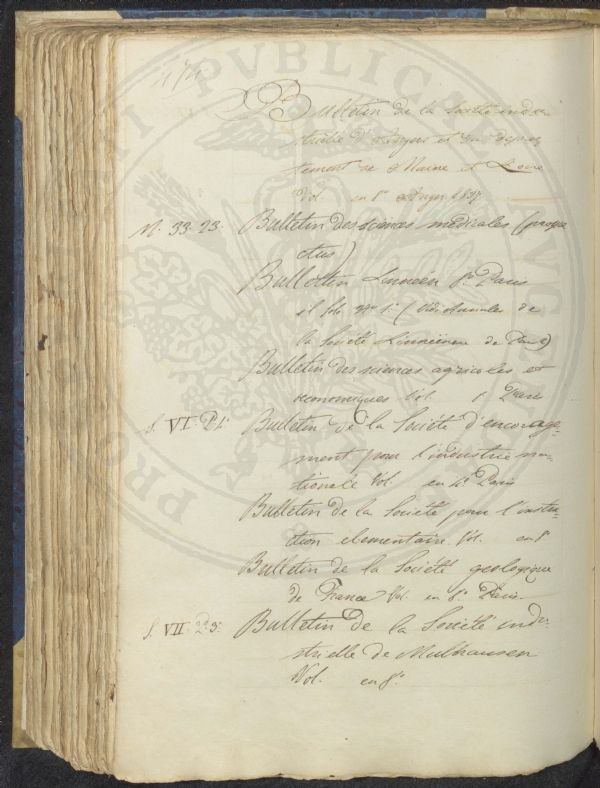 174
Bulletin de la Societé indu-
strielle d'Angers et du depar-
tement de Maine et Loire
Vol. en 8° Angers 1837
N. 33. 23. Bulletin des sciences medicales (prospe
ctus)
Bulletin Linnéen 8° Paris
il solo N° 1° (Vedi Annales de
la Societé Linnéenne de Paris)
Bulletin des sciences agricoles et
economiques Vol. 8° Paris
S. VI. P4: Bulletin de la Societé d'encourage-
ment pour l'industrie na-
tionale Vol en 4° Paris
Bulletin de la Societé pour l'instru-
ction elementaire. Vol. en 8°
Bulletin de la Societé geologique
de France Vol. en 8° Paris.
S. VII. P.3: Bulletin de la Societé indu-
strielle de Mulhausen
Vol. en 8°.
PUBLICAE